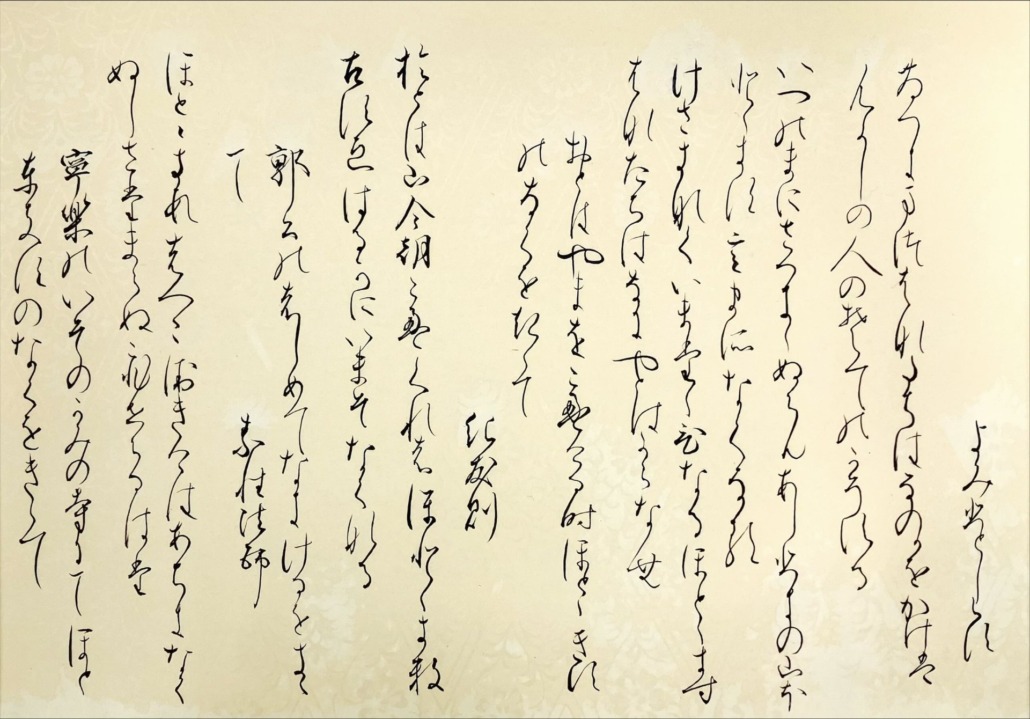 よみ人しらす
さつきまつはなたちはなのかをかけは
むかしの人のそてのかそする
いつのまにさつきゝぬらんあしひきの山ほ
とゝきすいまそなくなる
けさきなくいまたゝひなるほとゝきす
はなたちはなにやとはからなむ
おとはやまをこえける時ほとゝきす
のなくをきゝて
紀友則
おとは山今朝こえくれはほとゝきす
こすゑはるかにいまそなくなる
郭公のはしめてなきけるをきゝ
て
素性法師
ほとゝきすはつこゑきけはあちきなく
ぬしさたまらぬこひせらるはた
寧楽のいそのかみの寺にてほと
ときすのなくをきゝて